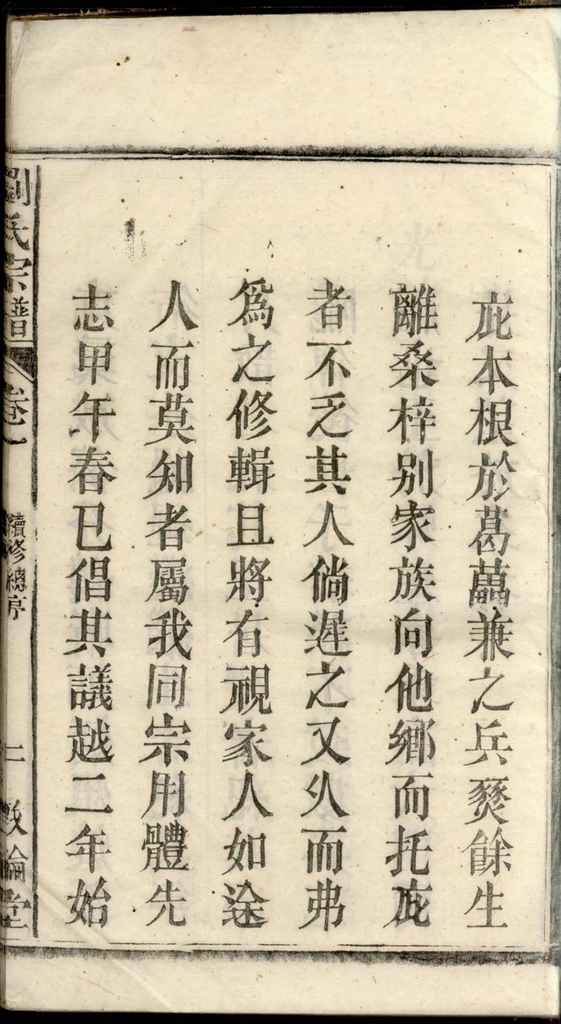 庇本根於葛藟兼之兵燹餘生
離桑梓别家族向他鄉而托庇
者不乏其人倘遲之又久而弗
爲之修輯且將有視家人如途
人而莫知者屬我同宗用體先
志甲午春已倡其議越二年始
劉氏宗譜
卷一
續修總序
二
敦倫堂